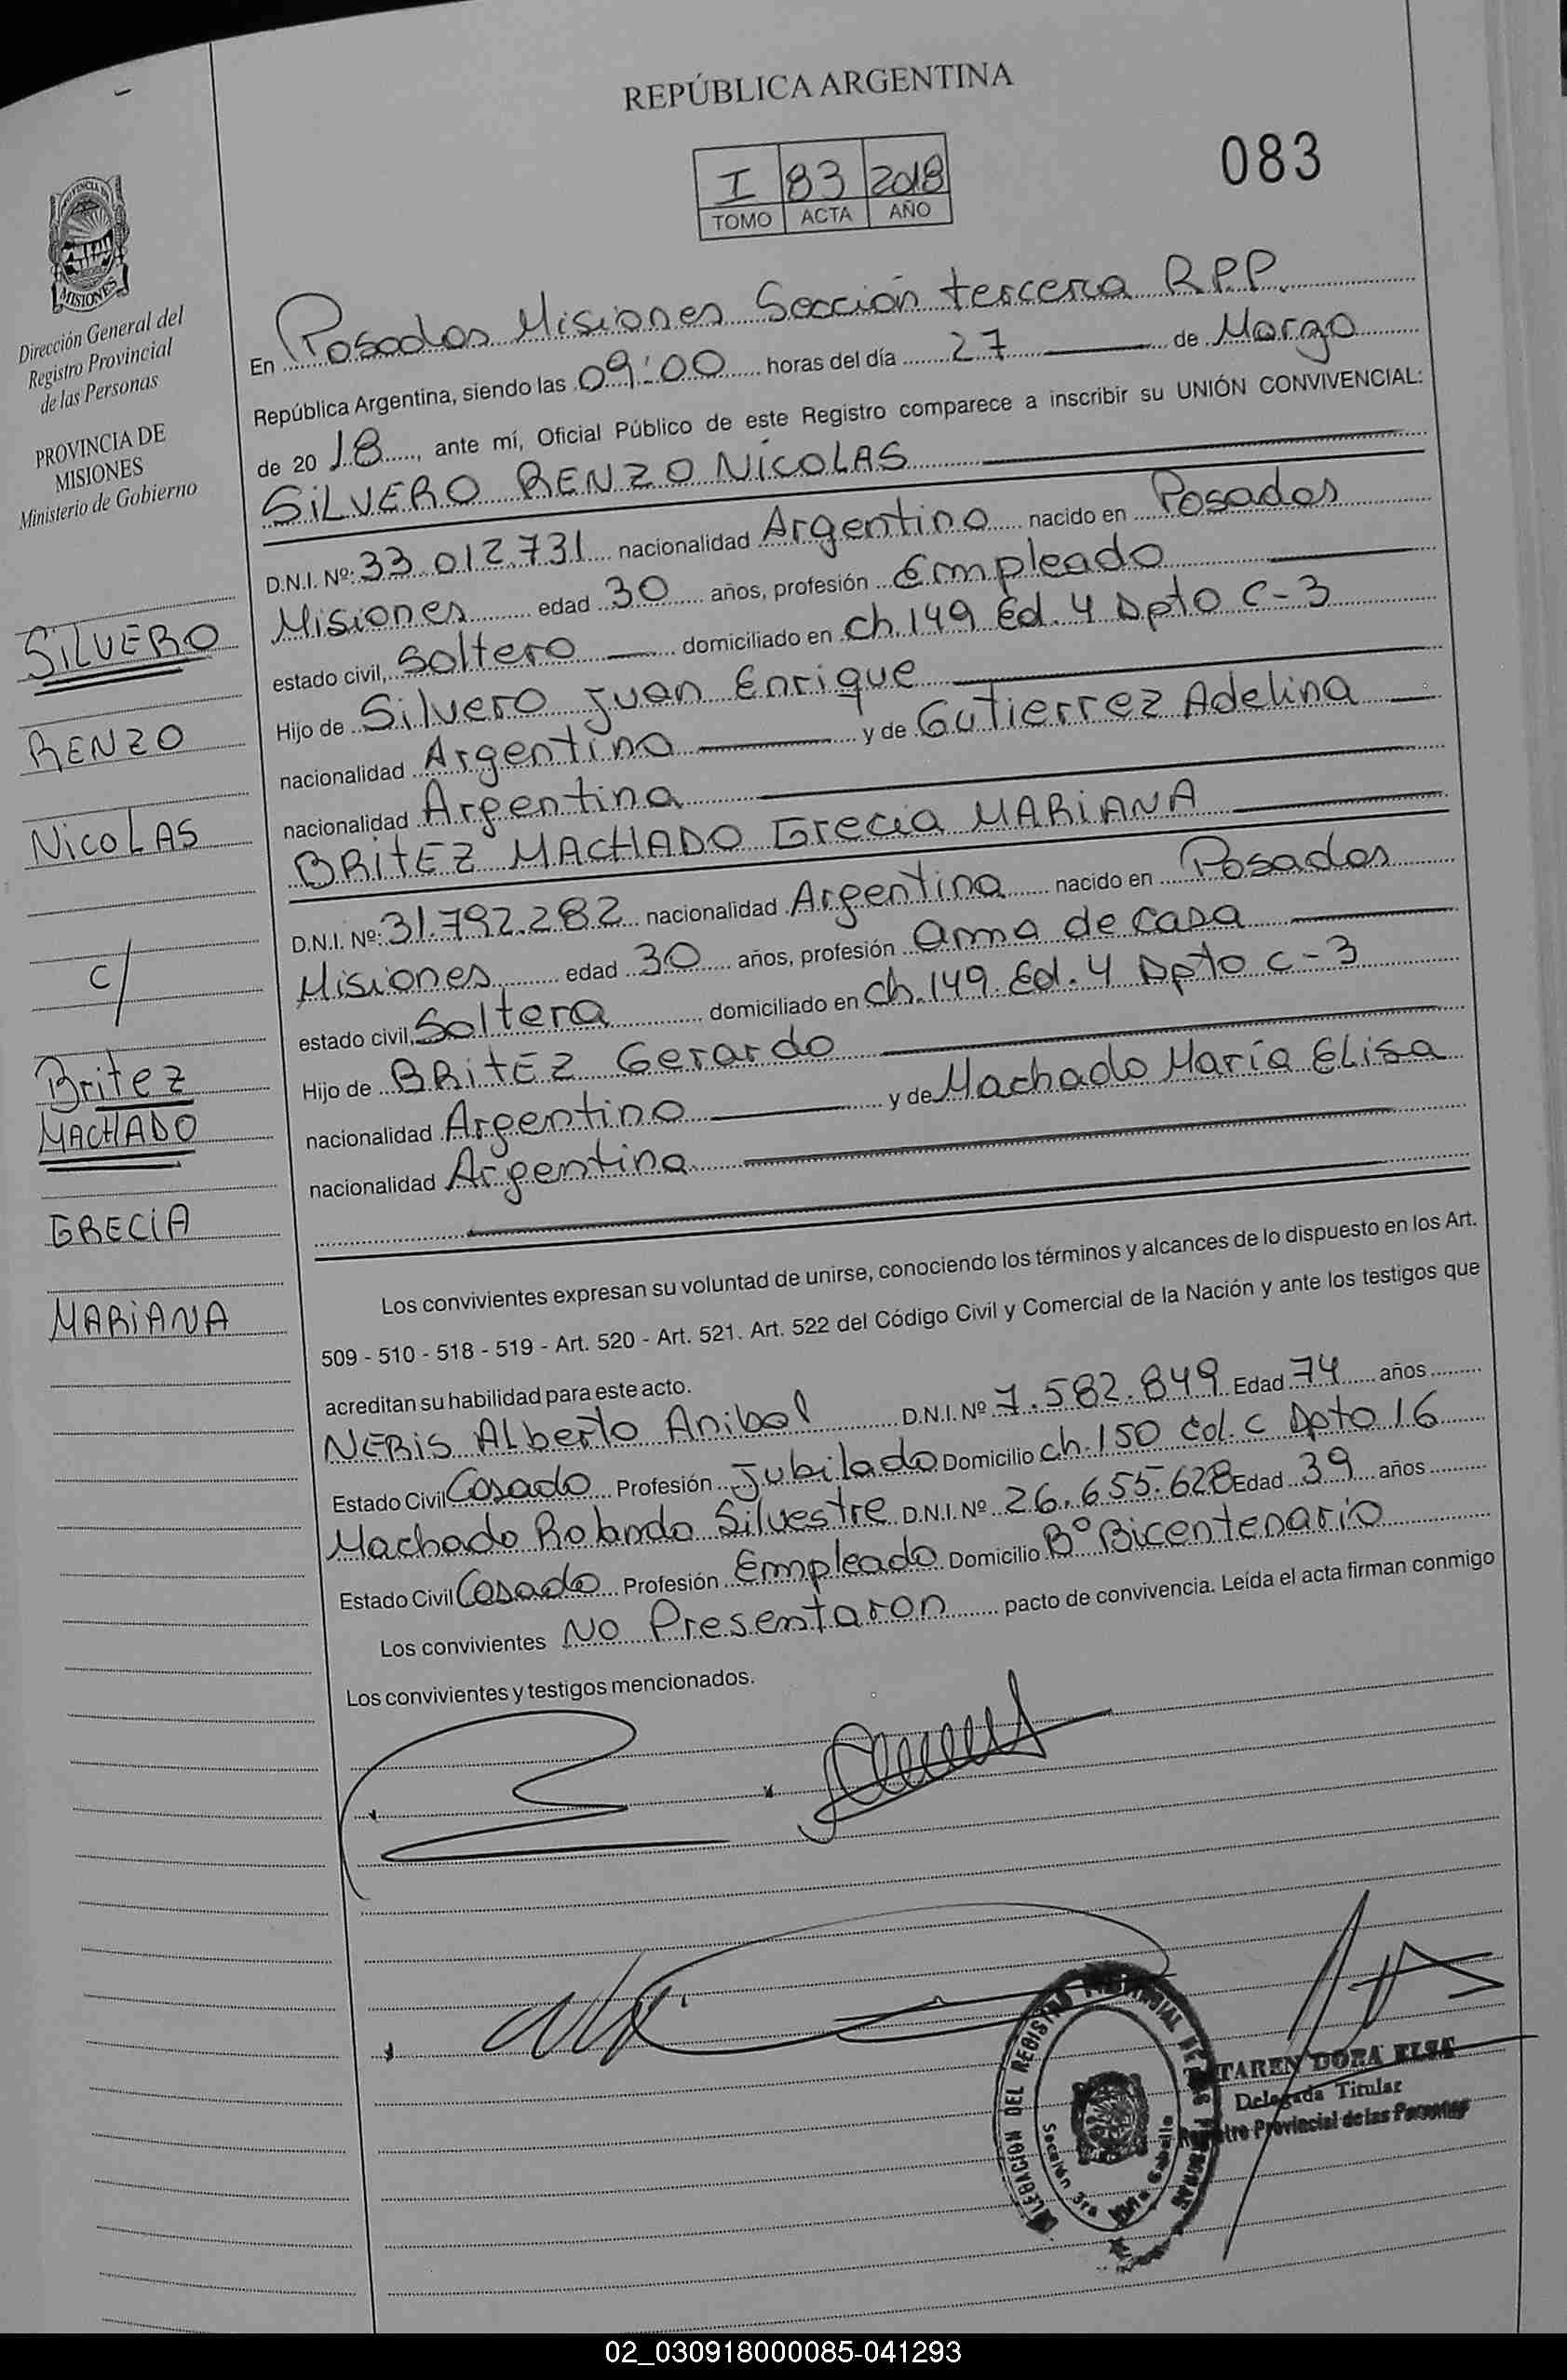 REPÚBLICA ARGENTINA
I 83 2018
TOMO ACTA AÑO
083
PROVINCIA DE
MISIONES
Dirección General del
Registro Provincial
de las Personas
PROVINCIA DE
MISIONES
Ministerio de Gobierno
SILVERO
RENZO
NICOLAS
c/
Britez
MACHADO
GRECIA
MARIANA
En Posadas Misiones Sección tercera R.P.P.
República Argentina, siendo las 09:00 horas del día 27 de Marzo
de 20 18, ante mí, Oficial Público de este Registro comparece a inscribir su UNIÓN CONVIVENCIAL:
SILVERO RENZO NICOLAS
D.N.I. Nº: 33.012.731 nacionalidad Argentino nacido en Posadas
Misiones edad 30 años, profesión Empleado
estado civil, Soltero domiciliado en Ch. 149 Ed. 4 Dpto C-3
Hijo de Silvero Juan Enrique
nacionalidad Argentino y de Gutierrez Adelina
nacionalidad Argentina
BRITEZ MACHADO Grecia MARIANA
D.N.I. Nº: 31.792.282 nacionalidad Argentina nacido en Posadas
Misiones edad 30 años, profesión ama de casa
estado civil, Soltera domiciliado en Ch. 149. Ed. 4 Dpto C-3
Hijo de BRITEZ Gerardo
nacionalidad Argentino y de Machado María ELisa
nacionalidad Argentina
Los convivientes expresan su voluntad de unirse, conociendo los términos y alcances de lo dispuesto en los Art.
509 - 510 - 518 - 519 - Art. 520 - Art. 521. Art. 522 del Código Civil y Comercial de la Nación y ante los testigos que
acreditan su habilidad para este acto.
NERIS ALberto Anibal D.N.I. Nº 7.582.849 Edad 74 años
Estado Civil Casado Profesión Jubilado Domicilio Ch. 150 Ed. C Dpto 16
Machado Rolando Silvestre D.N.I. Nº 26.655.628 Edad 39 años
Estado Civil Casado Profesión Empleado Domicilio Bº Bicentenario
Los convivientes No Presentaron pacto de convivencia. Leída el acta firman conmigo
Los convivientes y testigos mencionados.
DELEGACION DEL REGISTRO PROVINCIAL DE LAS PERSONAS
Sección 3ra
DORA ELSA
Delegada Titular
Registro Provincial de las Personas
02_030918000085-041293